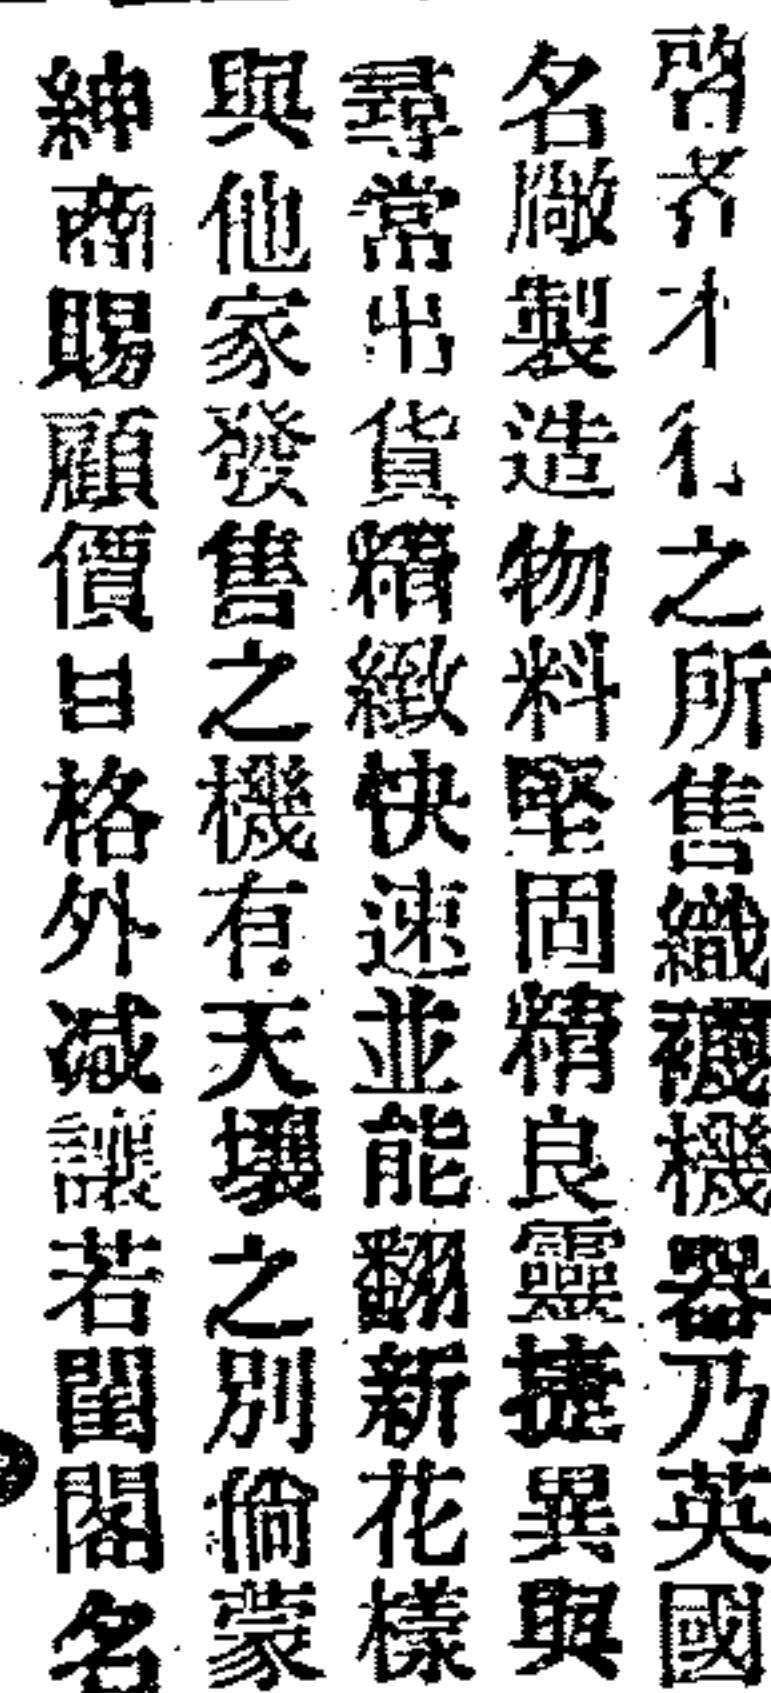 啓者本行之所售織襪機器乃英國
名廠製造物料堅固精良靈捷異與
尋常出貨精緻快速並能翻新花樣
與他家發售之機有天壤之別倘蒙
紳商賜顧價目格外减讓若閨閣名